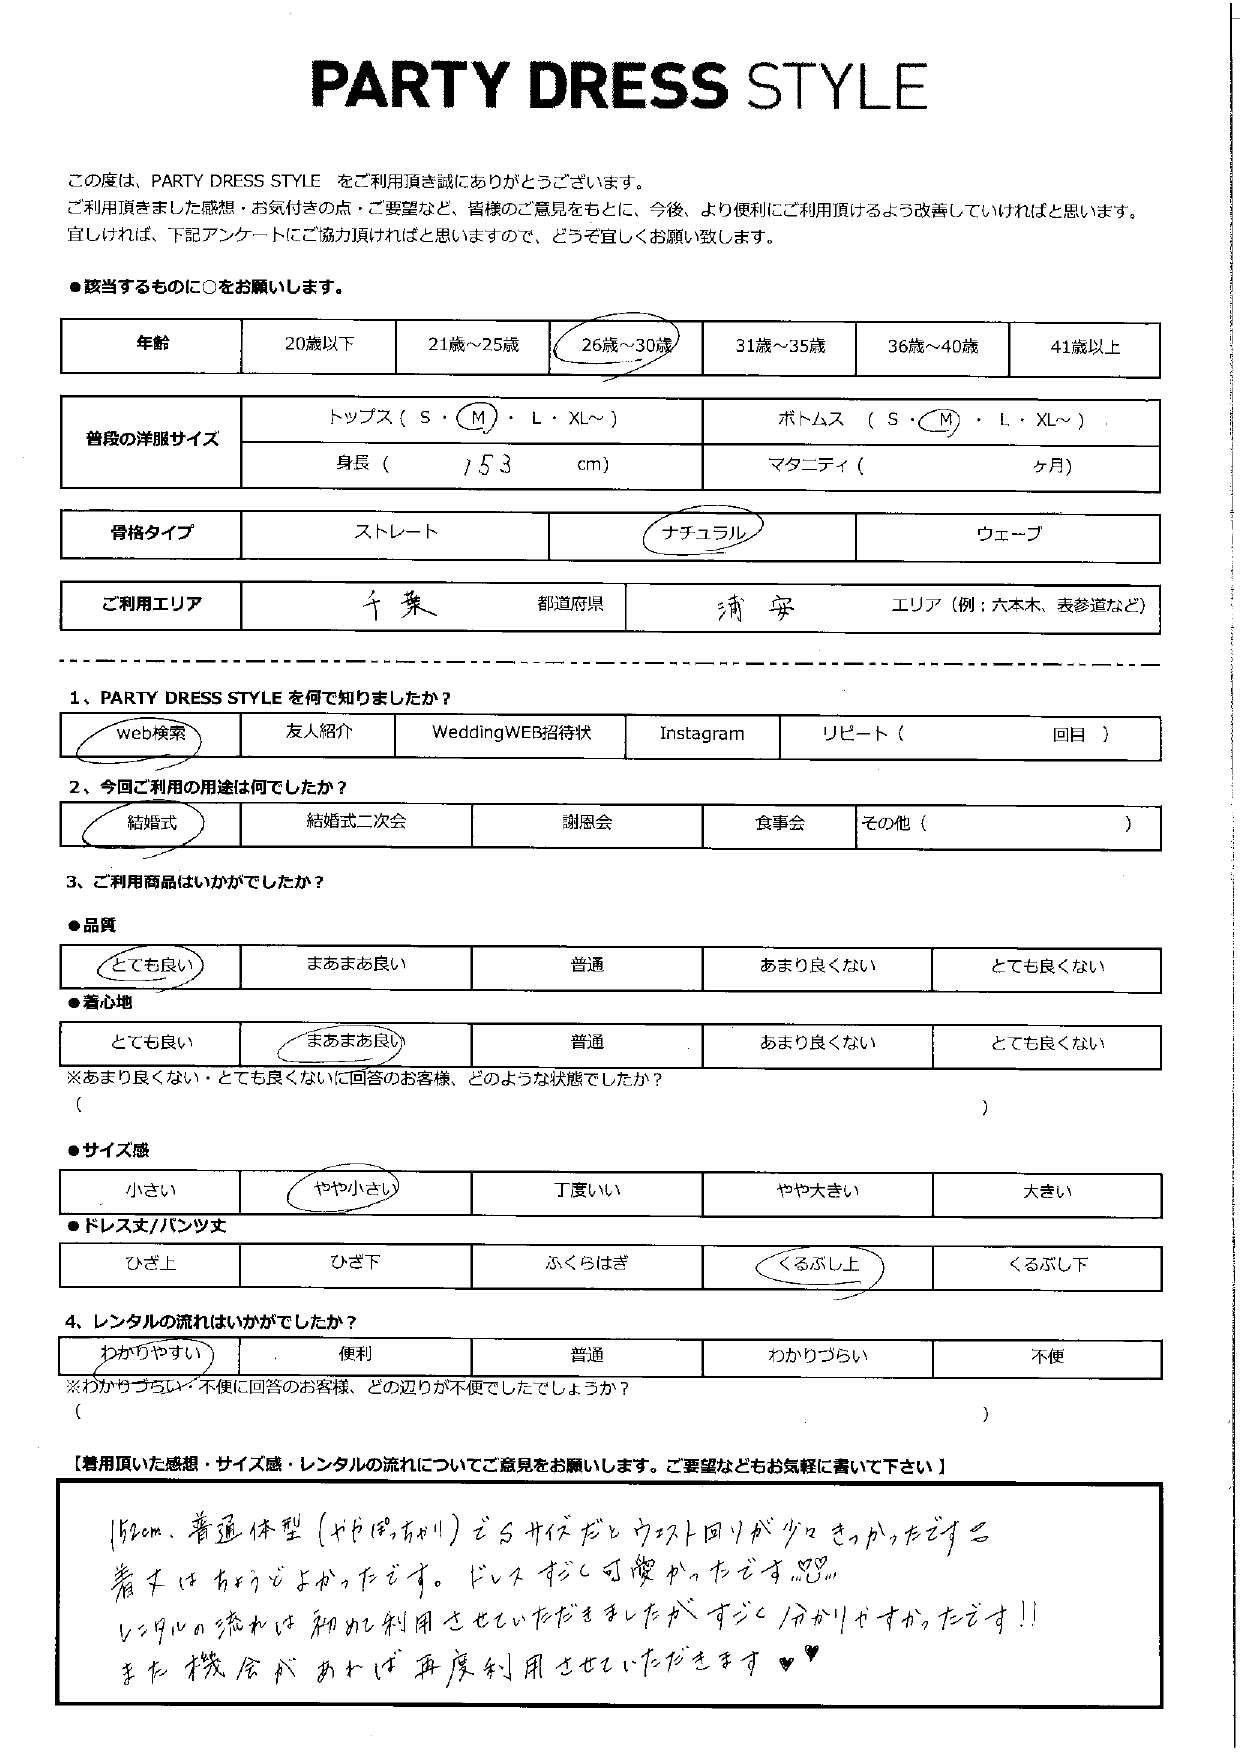 PARTY DRESS STYLE
この度は、PARTY DRESS STYLE をご利用頂き誠にありがとうございます。
ご利用頂きました感想・お気付きの点・ご要望など、皆様のご意見をもとに、今後、より便利にご利用頂けるよう改善していければと思います。
宜しければ、下記アンケートにご協力頂ければと思いますので、どうぞ宜しくお願い致します。
●該当するものに○をお願いします。
年齢 20歳以下 21歳～25歳 26歳～30歳 31歳～35歳 36歳～40歳 41歳以上
普段の洋服サイズ トップス ( S ・ M ・ L ・ XL～ ) ボトムス ( S ・ M ・ L ・ XL～ )
身長 ( 153 cm) マタニティ ( ヶ月)
骨格タイプ ストレート ナチュラル ウェーブ
ご利用エリア 千葉 都道府県 浦安 エリア（例：六本木、表参道など）
1、PARTY DRESS STYLE を何で知りましたか？
web検索 友人紹介 WeddingWEB招待状 Instagram リピート ( 回目 )
2、今回ご利用の用途は何でしたか？
結婚式 結婚式二次会 謝恩会 食事会 その他 ( )
3、ご利用商品はいかがでしたか？
●品質
とても良い まあまあ良い 普通 あまり良くない とても良くない
●着心地
とても良い まあまあ良い 普通 あまり良くない とても良くない
※あまり良くない・とても良くないに回答のお客様、どのような状態でしたか？
( )
●サイズ感
小さい やや小さい 丁度いい やや大きい 大きい
●ドレス丈/パンツ丈
ひざ上 ひざ下 ふくらはぎ くるぶし上 くるぶし下
4、レンタルの流れはいかがでしたか？
わかりやすい 便利 普通 わかりづらい 不便
※わかりづらい・不便に回答のお客様、どの辺りが不便でしたでしょうか？
( )
【着用頂いた感想・サイズ感・レンタルの流れについてご意見をお願いします。ご要望などもお気軽に書いて下さい】
152cm、普通体型(ややぽっちゃり)でSサイズだとウエスト回りが少々きつかったです
着丈はちょうどよかったです。ドレスすごく可愛かったです♡♡
レンタルの流れは初めて利用させていただきましたがすごく分かりやすかったです!!
また機会があれば再度利用させていただきます♥♥